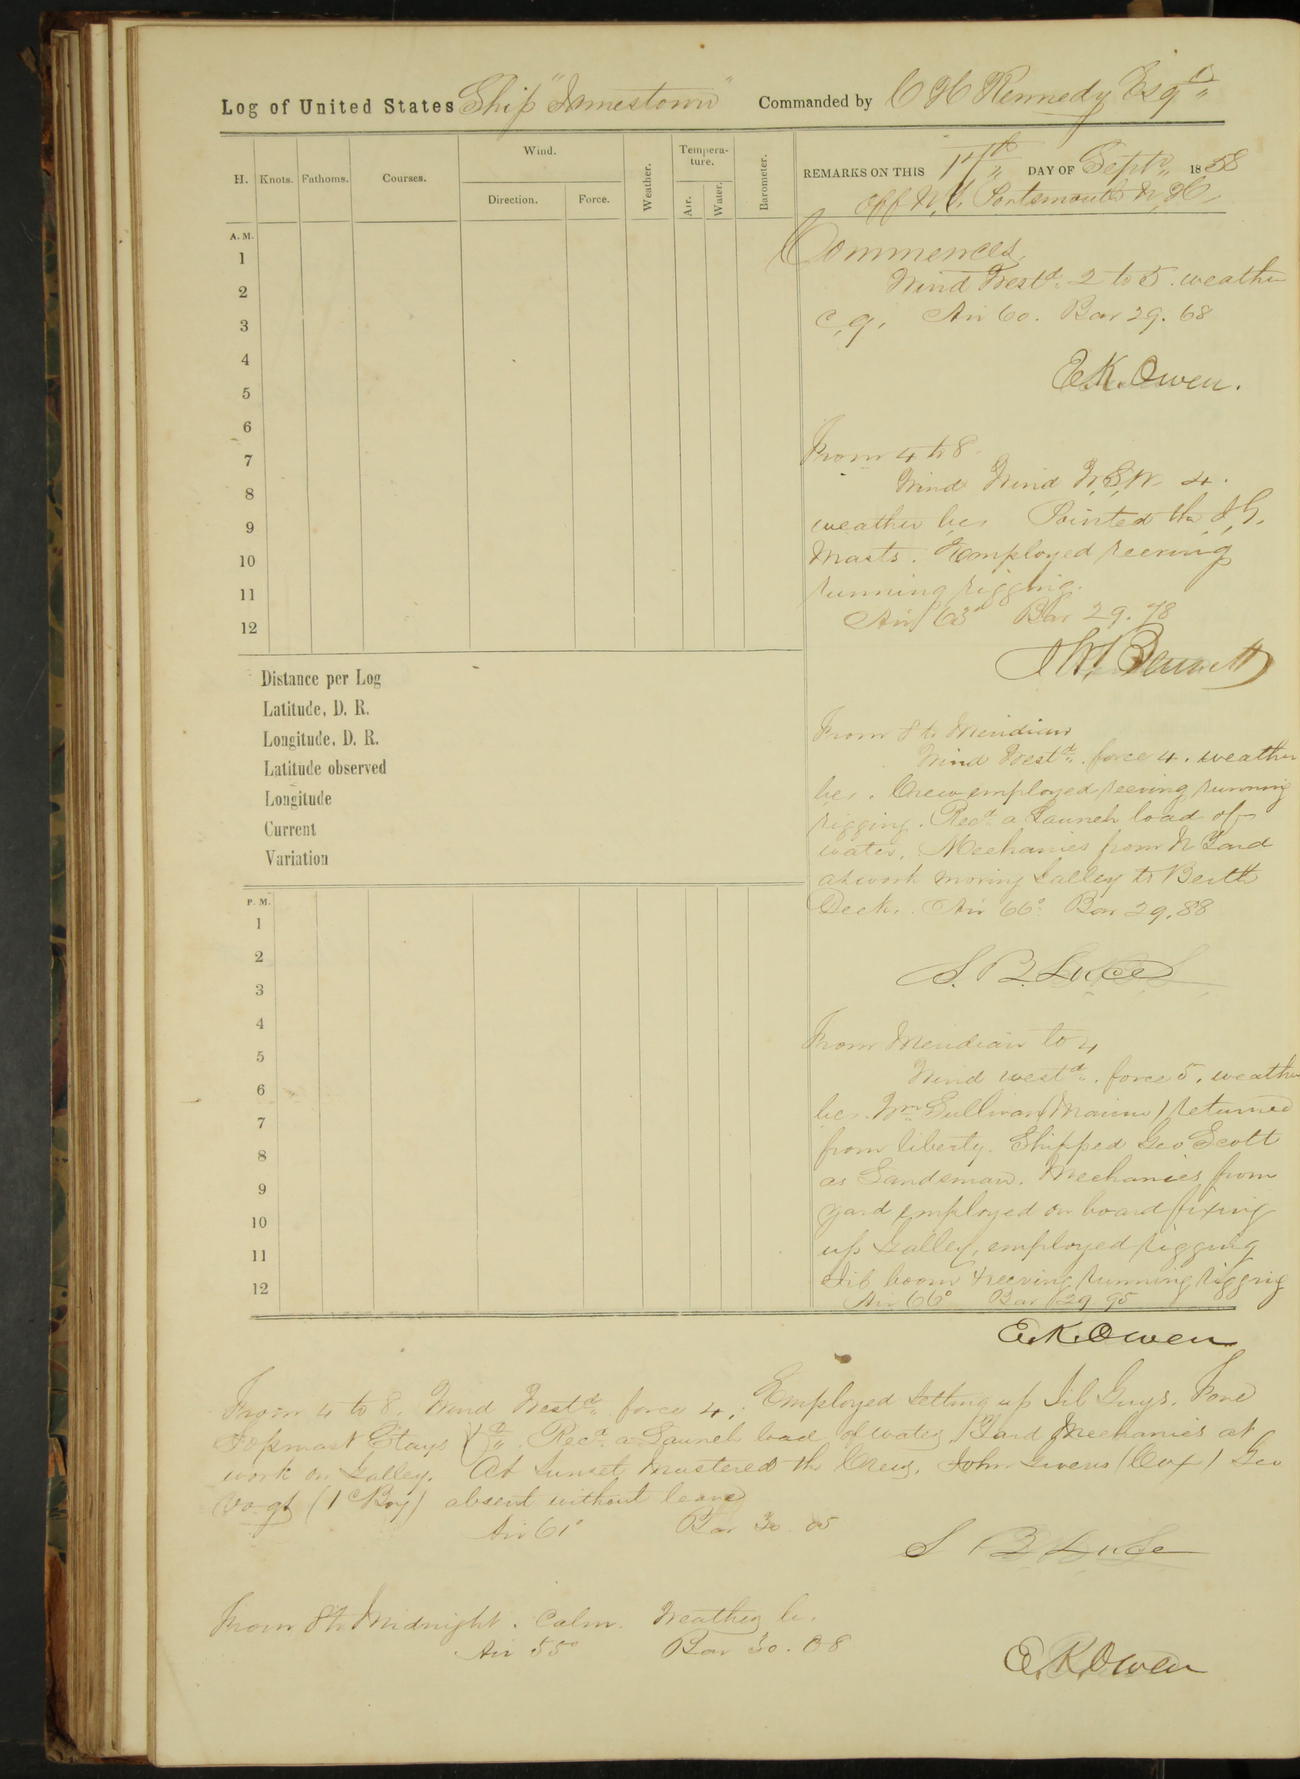 Log of United States Ship "Jamestown" Commanded by C H Kennedy Esqr
H. Knots. Fathoms. Courses. Wind. Direction. Force. Weather. Tempera-ture. Air. Water. Barometer.
REMARKS ON THIS 17th DAY OF Septr 1858
Off N.Y. Portsmouth N.H.
A. M.
1
2
3
4
5
6
7
8
9
10
11
12
Distance per Log
Latitude, D. R.
Longitude, D. R.
Latitude observed
Longitude
Current
Variation
P. M.
1
2
3
4
5
6
7
8
9
10
11
12
Commences
Wind Westd. 2 to 5. weather
c, q, Air 60. Bar 29.68
E.K. Owen.
From 4 to 8
Wind Wind W.S.W. 4.
weather bc. Pointed the J.G.
Masts. Employed reeving
running rigging.
Air 63° Bar 29.78
J W Bennett
From 8 to Meridian
Wind Westd. force 4. weather
bc. Crew employed reeving running
rigging. Recd. a Launch load of
water. Mechanics from N Yard
at work moving Galley to Berth
Deck. Air 66° Bar 29.88
S. B. Luce
From Meridian to 4
Wind westd. force 5. weather
bc. Wm Sullivan (Marine) returned
from liberty. Shipped Geo Scott
as Landsman. Mechanics from
yard employed on board fixing
up Galley, employed rigging
Jib boom & reeving running rigging
Air 66° Bar 29.95
E.K. Owen
From 4 to 8. Wind Westd. force 4. Employed setting up Jib Guys, Fore
Topmast Stays &c. Recd. a Launch load of water. Yard Mechanics at
work on Galley. At Sunset mustered the Crew. John Givens (Cox) Geo
Vogt (1 C Boy) absent without leave
Air 61° Bar 30.05
S B Luce
From 8 to Midnight. Calm. Weather b.
Air 55° Bar 30.08
E.K. Owen